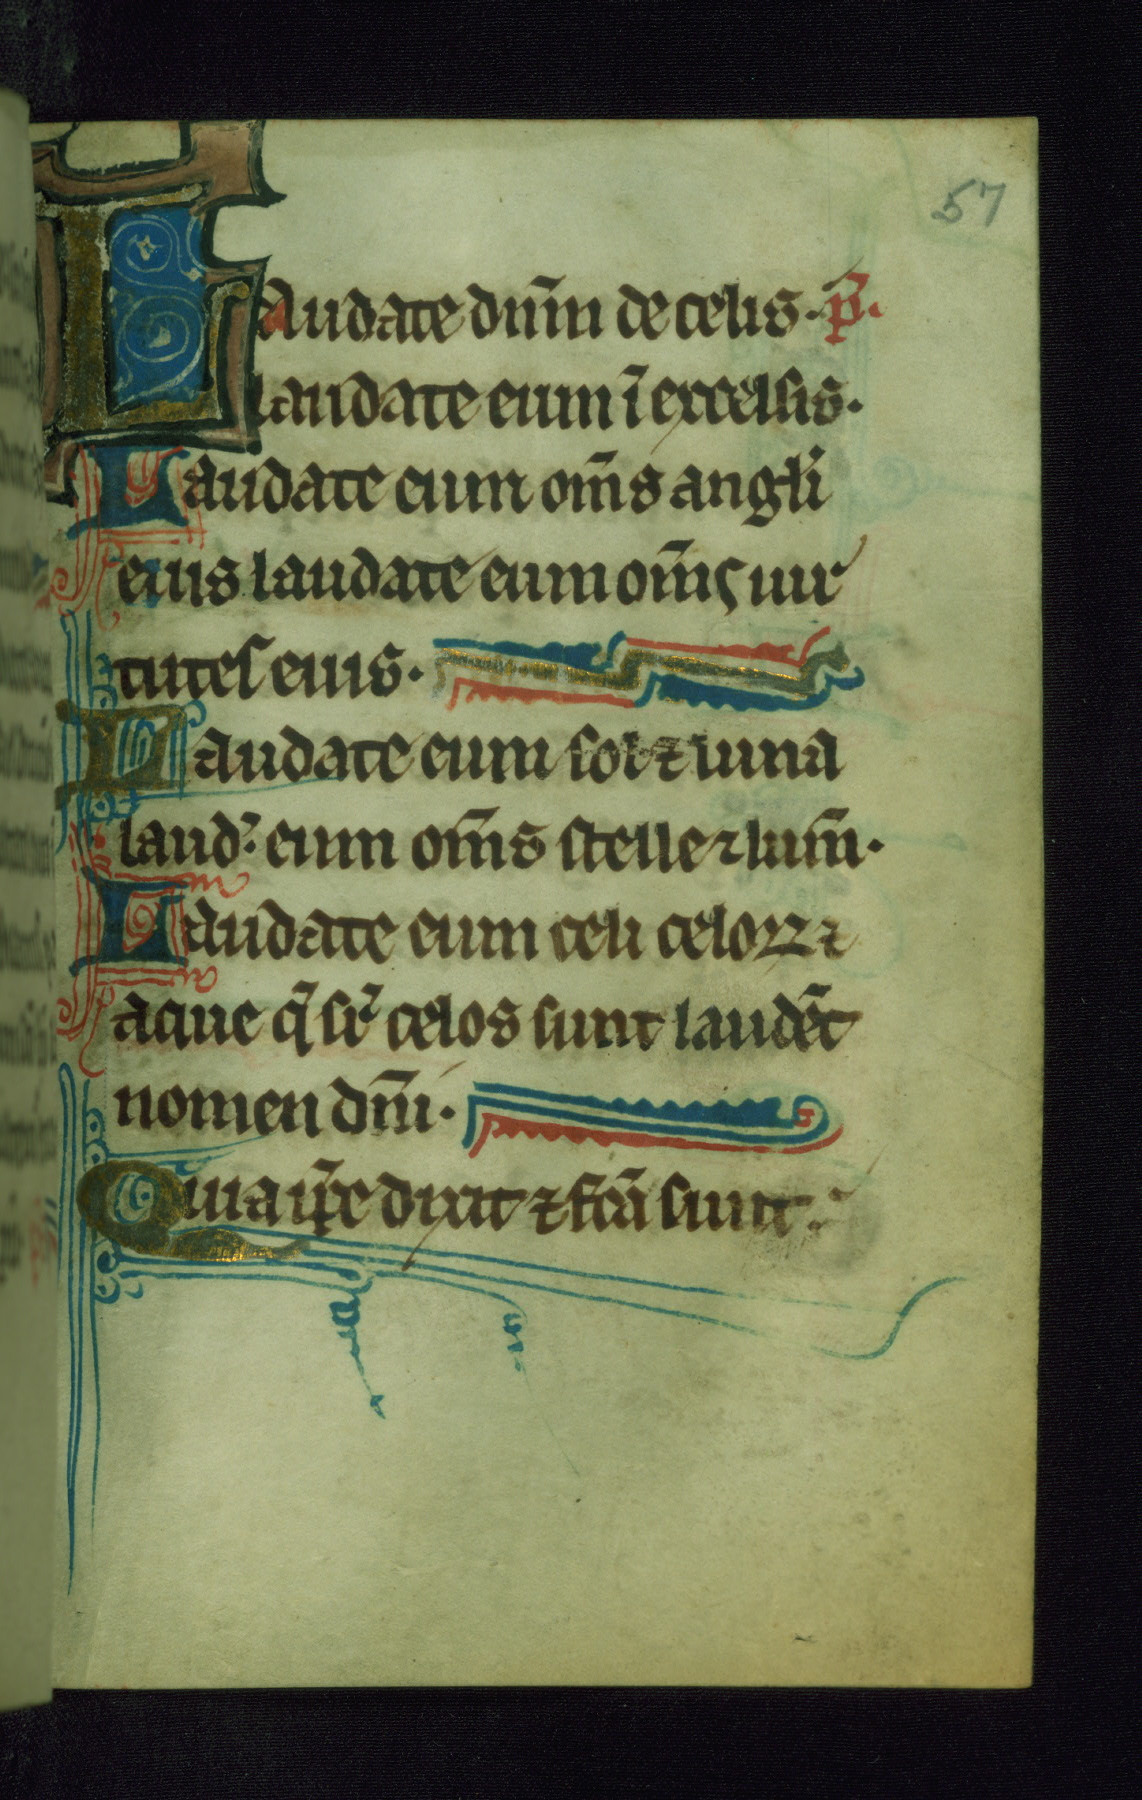 57
Laudate dn̄m de celis. p̄.
laudate eum ī excelsis.
Laudate eum om̄s angl̄i
eius laudate eum om̄s uir
tutes eius.
Laudate eum sol ⁊ luna
laud᷒ eum om̄s stelle ⁊ lum̄.
Laudate eum celi celoꝝ ⁊
aque q̄ sr̄ celos sunt laudēt
nomen dn̄i.
Quia ip̄e dixit ⁊ fc̄a sunt.